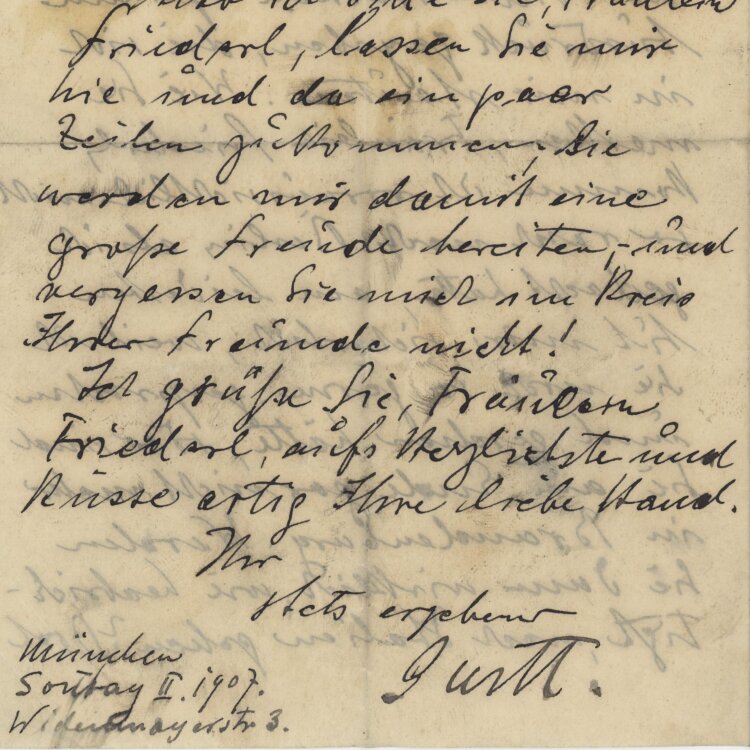 Sie, Fräulein
Friederl, lassen Sie mir
hie und da ein paar
Zeilen zukommen, Sie
werden mir damit eine
große Freude bereiten, – und
vergessen Sie mich im Kreis
Ihrer Freunde nicht!
Ich grüße Sie, Fräulein
Friederl, aufs Herzlichste und
Küsse artig Ihre liebe Hand.
Ihr
stets ergebener
München
Sonntag II. 1907.
Widenmayerstr. 3.